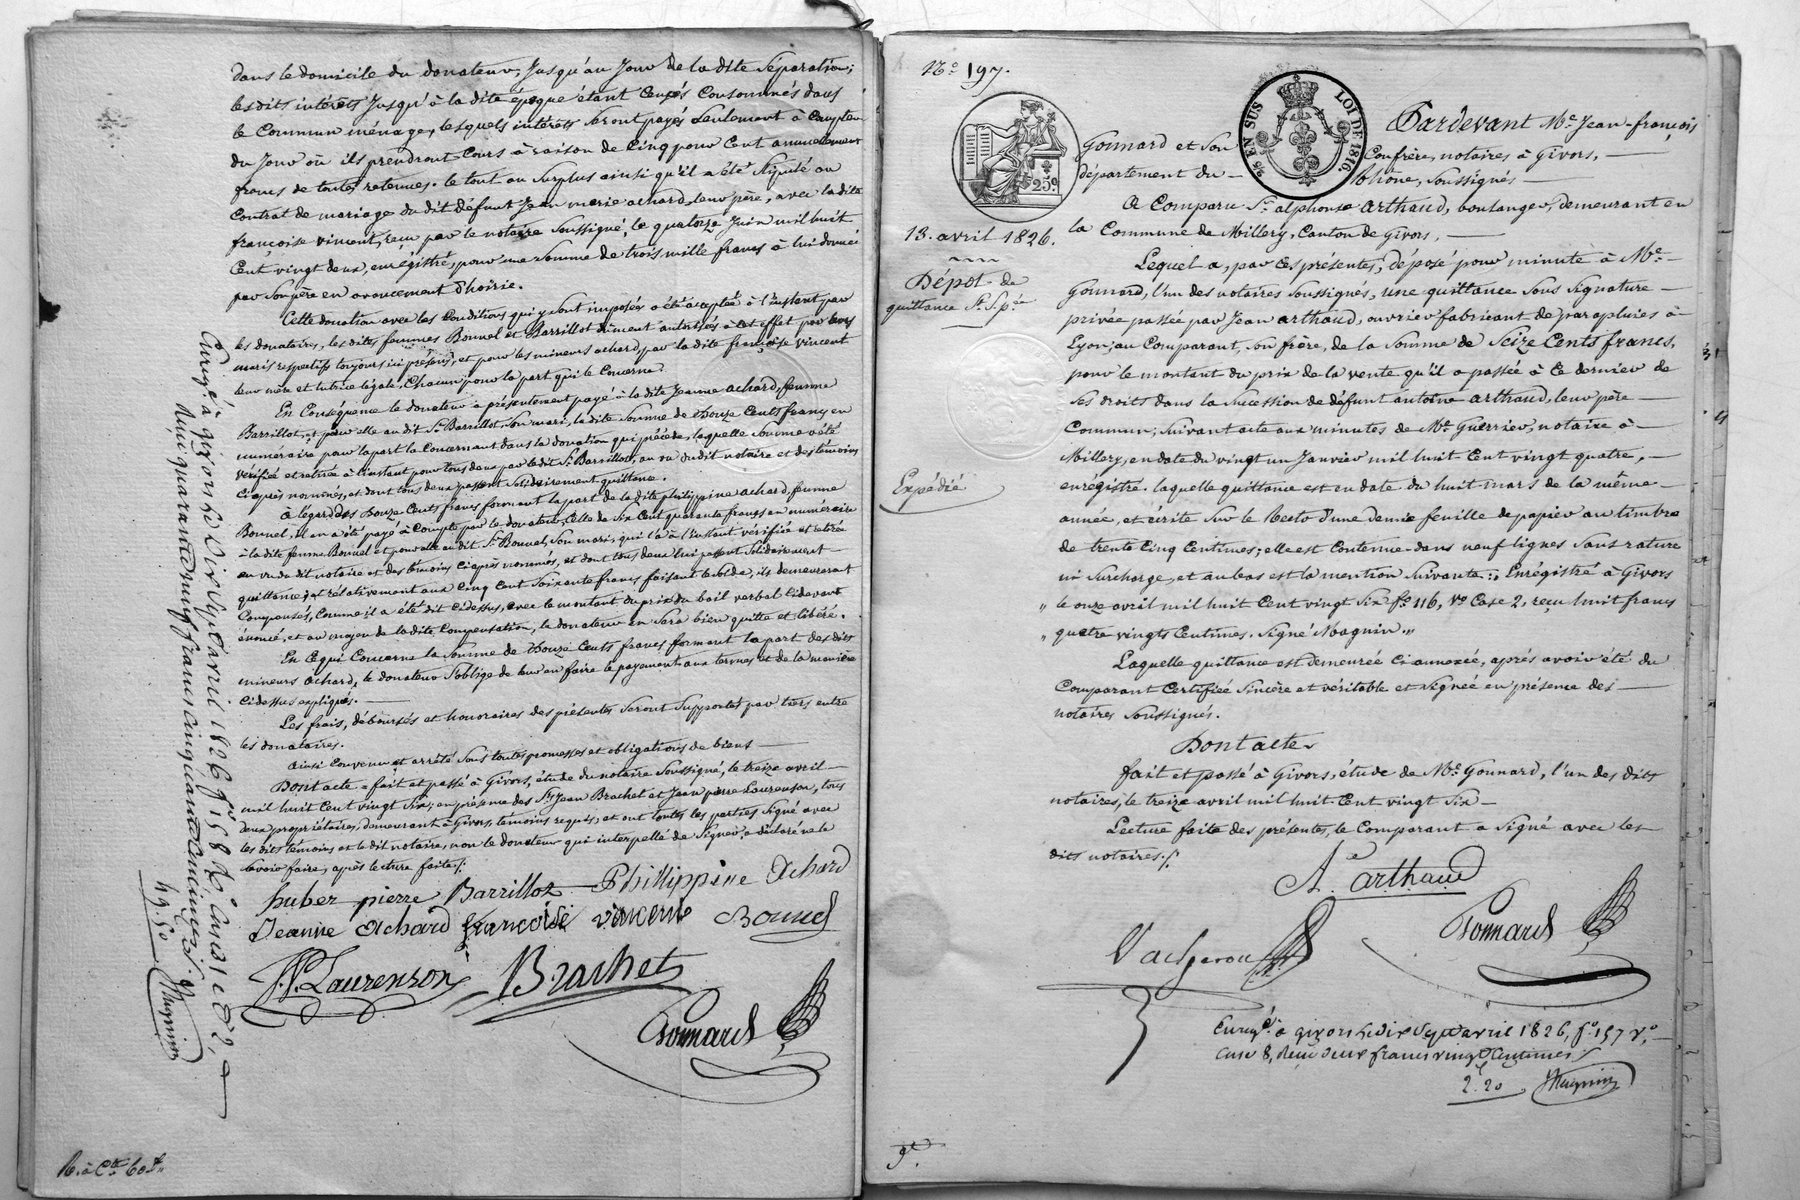 dans le domicile du donateur, jusqu'au jour de la dite séparation;
les dits intérêts jusqu'à la dite époque étant censés consommés dans
le commun ménage, lesquels intérêts seront payés seulement à compter
du jour où ils prendront cours à raison de cinq pour cent annuellement
francs de toutes retenues. le tout au surplus ainsi qu'il a été stipulé au
contrat de mariage du dit défunt Jean marie achard, leur père, avec la dite
françoise vincent, reçu par le notaire soussigné, le quatorze Juin mil huit
cent vingt deux, enrégistré, pour une somme de trois mille francs à lui donnée
par son père en avancement d'hoirie.
Cette donation avec les conditions qui y sont imposées a été acceptée à l'instant par
les donataires, les dites femmes Bonnel et Barrillot dûment autorisées à cet effet par leurs
maris respectifs toujours ici présens, et pour les mineurs achard, par la dite françoise vincent
leur mère et tutrice légale, chacun pour la part qui le concerne.
En conséquence le donateur a présentement payé à la dite Jeanne achard, femme
Barrillot, et pour elle au dit Sr. Barrillot, son mari, la dite somme de douze cents francs en
numéraire pour la part la concernant dans la donation qui précède, laquelle somme a été
vérifiée et retirée à l'instant pour tous deux par le dit Sr. Barrillot, au vu du dit notaire et des témoins
ci après nommés, et dont tous deux passent solidairement quittance.
à l'égard des douze cents francs formant la part de la dite philippine achard, femme
Bonnel, il en a été payé à compte par le donateur, celle de six cent quarante francs en numéraire
à la dite femme Bonnel et pour elle au dit Sr. Bonnel, son mari, qui l'a à l'instant vérifiée et retirée
au vu du dit notaire et des témoins ci après nommés, et dont tous deux lui passent solidairement
quittance; et relativement aux cinq cent soixante francs faisant le solde, ils demeureront
compensés, comme il a été dit ci dessus, avec le montant du prix du bail verbal ci devant
énoncé, et au moyen de la dite compensation, le donateur en sera bien quitte et libéré.
En ce qui concerne la somme de douze cents francs formant la part des dits
mineurs achard, le donateur s'oblige de leur en faire le payement aux termes et de la manière
ci dessus expliqués.
Les frais, déboursés et honoraires des présentes seront supportés par tiers entre
les donataires.
ainsi convenu et arrêté sous toutes promesses et obligations de biens
Dont acte, fait et passé à Givors, étude du notaire soussigné, le treize avril
mil huit cent vingt six; en présence des Srs. Jean Brachet et Jean pierre Laurenson, tous
deux propriétaires, demeurant à Givors, témoins requis, et ont toutes les parties signé avec
les dits témoins et le dit notaire, non le donateur qui interpellé de signer, a déclaré ne le
savoir faire, après lecture faite./.
huber pierre Barrillot Phillippine Achard
Jeanne Achard françoise vincent Bonnel
J.P. Laurenson Brachet
Gonnard
Enregé. à givors le dix sept avril 1826 fo. 158 Ro. cases 1 et 2,
reçu quarante neuf francs cinquante centimes
49.50 Magnin
No. 197.
25c.
95 EN SUS
LOI DE 1816.
13. avril 1826.
Dépot de
quittance S. S. pée
Expédié
Pardevant Me. Jean-françois
Gonnard et son confrère, notaires à Givors,
département du Rhône, soussignés
a comparu Sr. alphonse arthaud, boulanger, demeurant en
la commune de Millery, canton de Givors,
Lequel a, par ces présentes, déposé pour minute à Me.
Gonnard, l'un des notaires soussignés, une quittance sous signature
privée passée par Jean arthaud, ouvrier fabricant de parapluies à
Lyon, au comparant, son frère, de la somme de seize cents francs,
pour le montant du prix de la vente qu'il a passée à ce dernier de
ses droits dans la succession de défunt antoine arthaud, leur père
commun, suivant acte aux minutes de Me. Guerrier, notaire à
Millery, en date du vingt un Janvier mil huit cent vingt quatre,
enregistré. laquelle quittance est en date du huit mars de la même
année, et écrite sur le recto d'une demie feuille de papier au timbre
de trente cinq centimes; elle est contenue dans neuf lignes sans rature
ni surcharge, et au bas est la mention suivante: Enrégistré à Givors
" le onze avril mil huit cent vingt six fo. 116, Vo. Case 2, reçu huit francs
" quatre vingts centimes. Signé Magnin."
Laquelle quittance est demeurée ci annexée, après avoir été du
comparant certifiée sincère et véritable et signée en présence des
notaires soussignés.
Dont acte
fait et passé à Givors, étude de Me. Gonnard, l'un des dits
notaires, le treize avril mil huit cent vingt six
Lecture faite des présentes, le comparant a signé avec les
dits notaires./.
Ae arthaud
Gonnard
Enregé. à givors le dix sept avril 1826, fo. 157 Vo.
case 8, reçu deux francs vingt centimes
2.20 Magnin